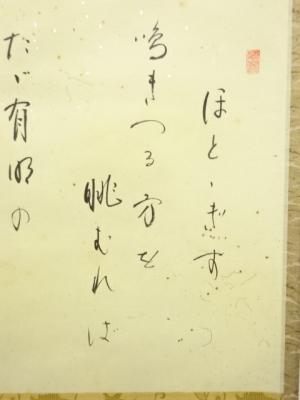 ほとゝぎす
鳴きつる方を
眺むれば
たゞ有明の